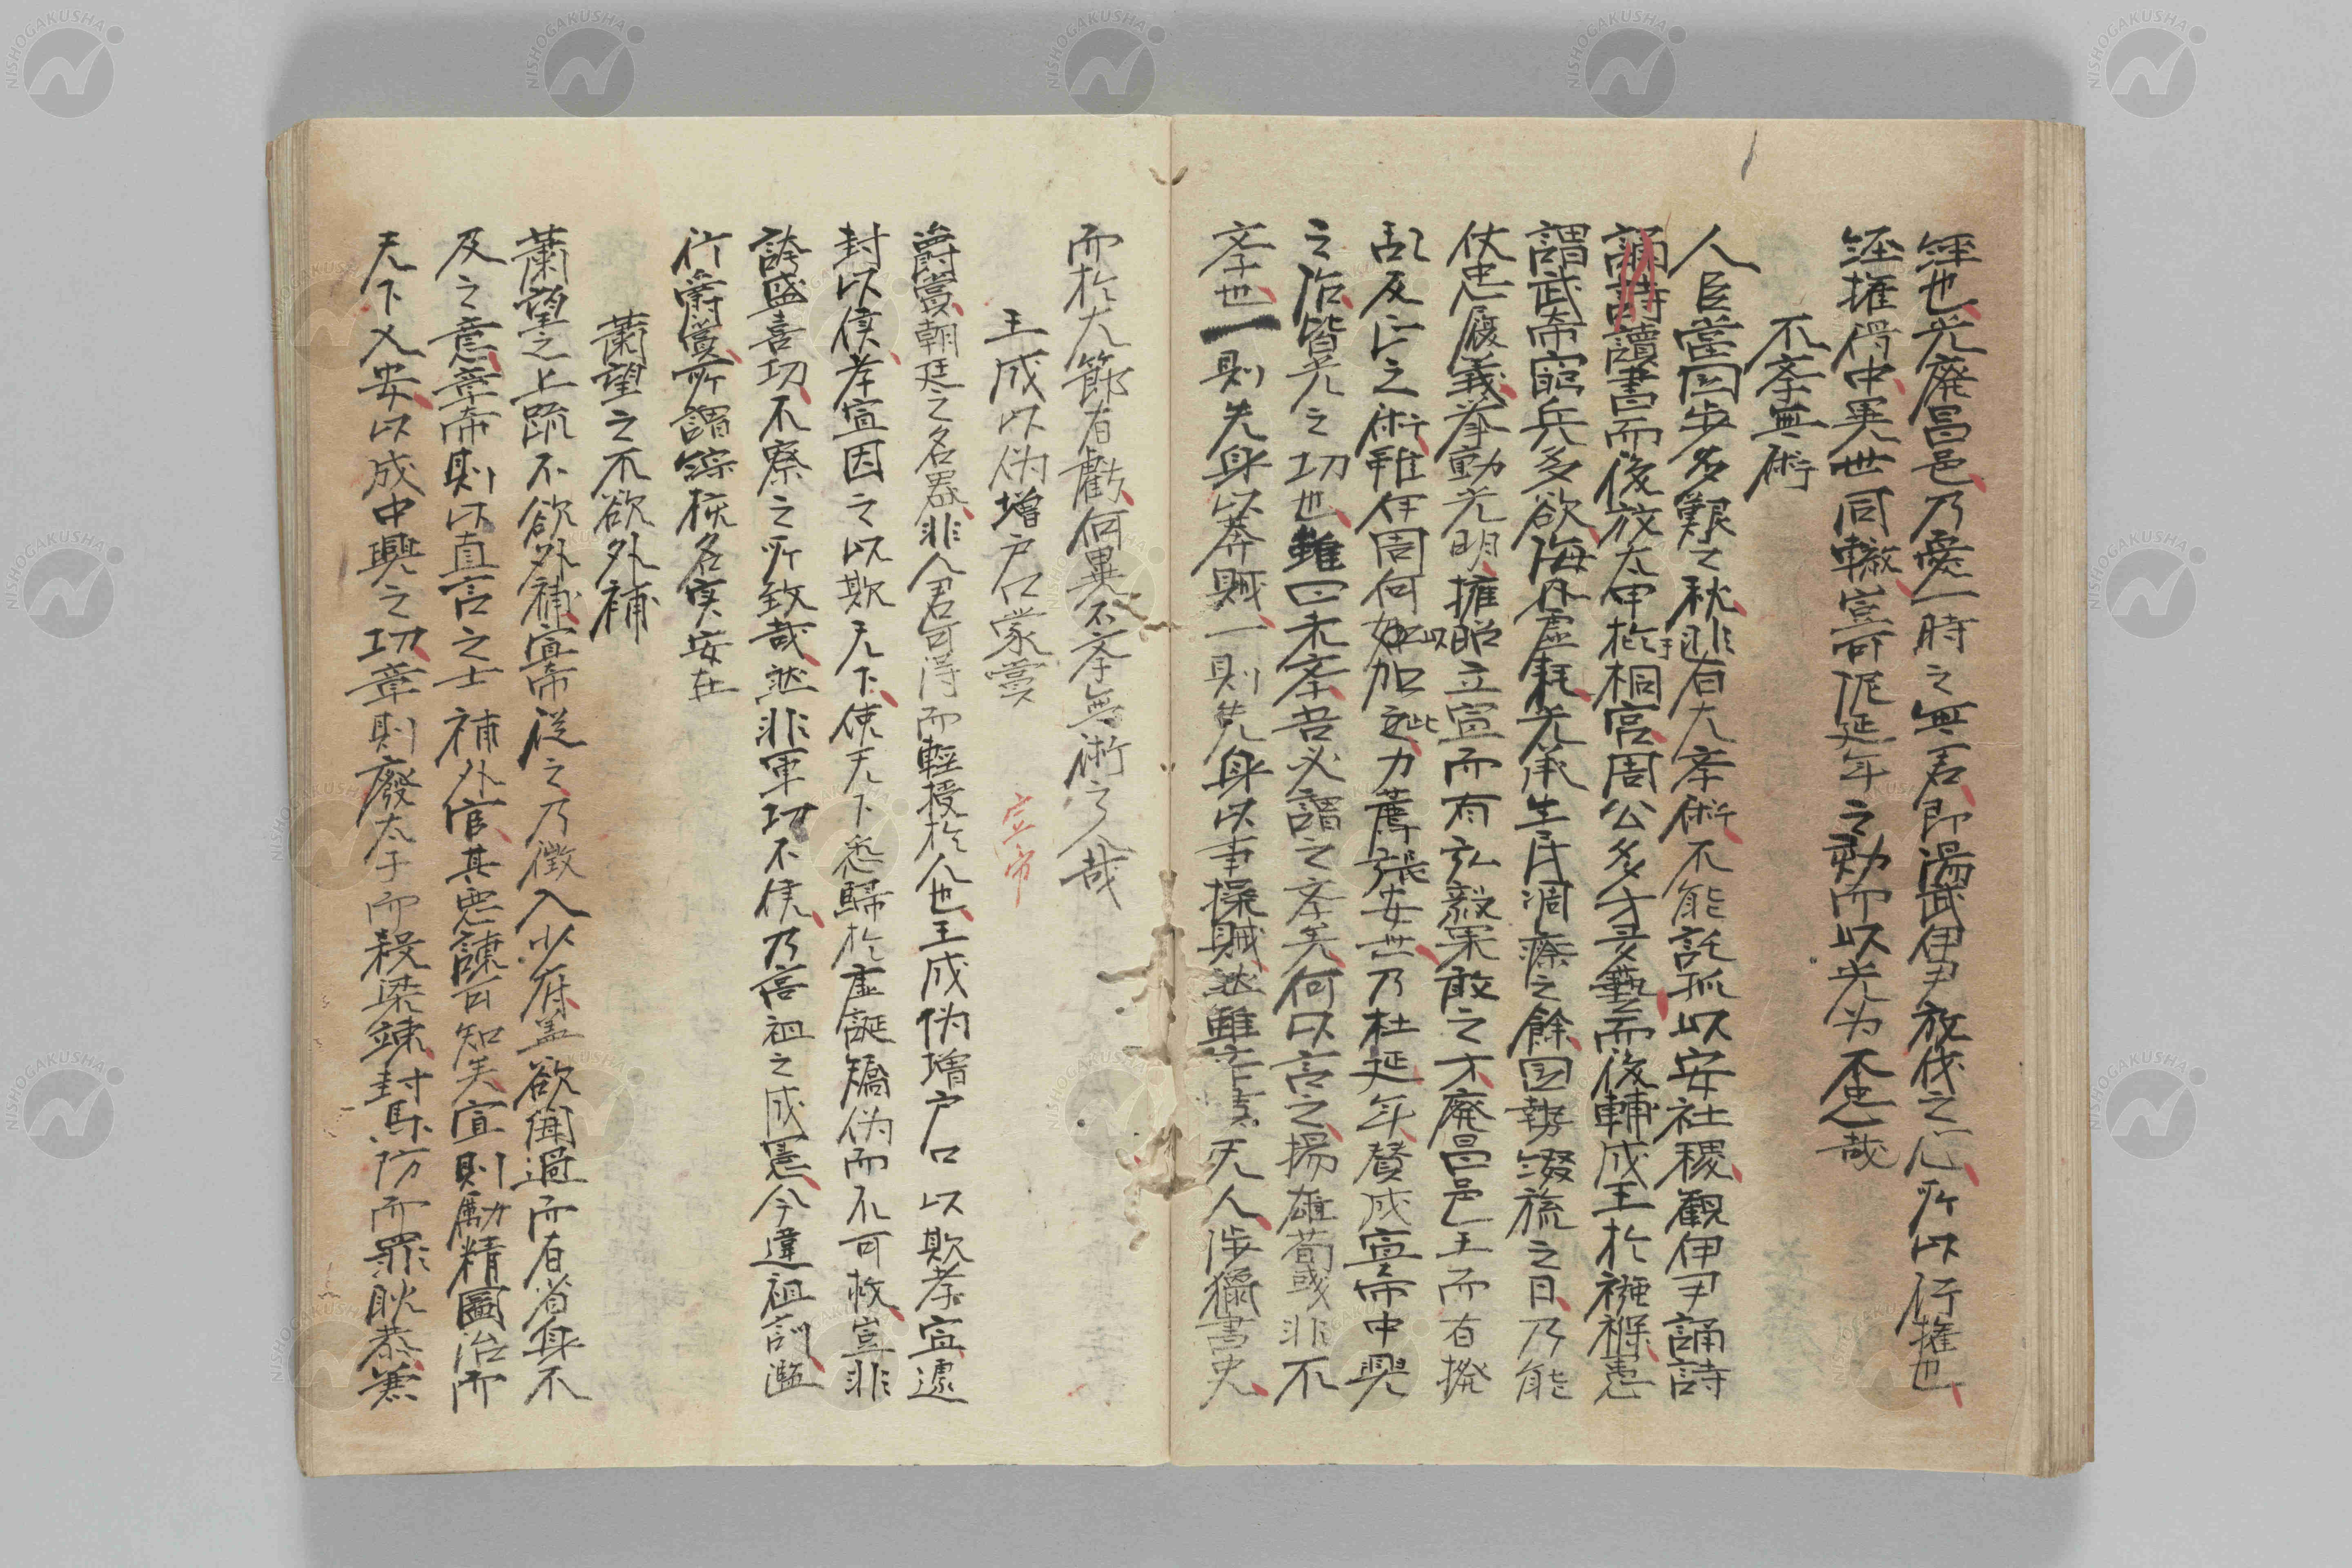 経也光廃昌邑乃憂一時之無君即湯武伊尹放伐之心所以行権也
経権得中異世同轍豈可俟延年之勅而以光为不忠哉
不孝無術
人臣当国歩多艱之秋非有大孝術不能託孤以安社稷観伊尹誦詩
読書而後放太甲於桐宮周公多才多藝而後輔成王於襁褓
謂武帝窮兵多欲海内虚耗光承生民凋瘵之餘国勢綴旒之日乃能
仗忠履義挙動光明擁昭立宣而有弘毅果敢之才廃昌邑王而有撥
乱反正之術雖伊周何以加此力薦張安世乃杜延年賛成宣帝中興
之治皆光之功也雖曰未孝吾必謂之孝矣何以言之揚雄荀彧非不
孝也一則失身以莽賊一則失身以事操賊
無人渉獵書史
而於大節有虧何異不孝無術之人哉
王成以偽増戸口蒙賞 宣帝
爵賞朝廷之名器非人君可得而軽授於人也王成偽増戸口以欺孝宣遽
封以侯孝宣因之以欺天下使天下悉帰於虚誕矯偽而不可救豈非
誇盛喜功不察之所致哉然非軍功不侯乃高祖之成憲今違祖訓濫
行爵賞所謂綜核名実安在
蕭望之不欲外補
蕭望之上疏不欲外補宣帝従之乃徴入少府盖欲聞過而有省身不
及之意章帝則以直言之士補外官其悪諌可知矣宣則勵精圖治而
天下乂安以成中興之功章則廢太子而殺梁竦封馬防而罪耿恭兼
NISHOGAKUSHA